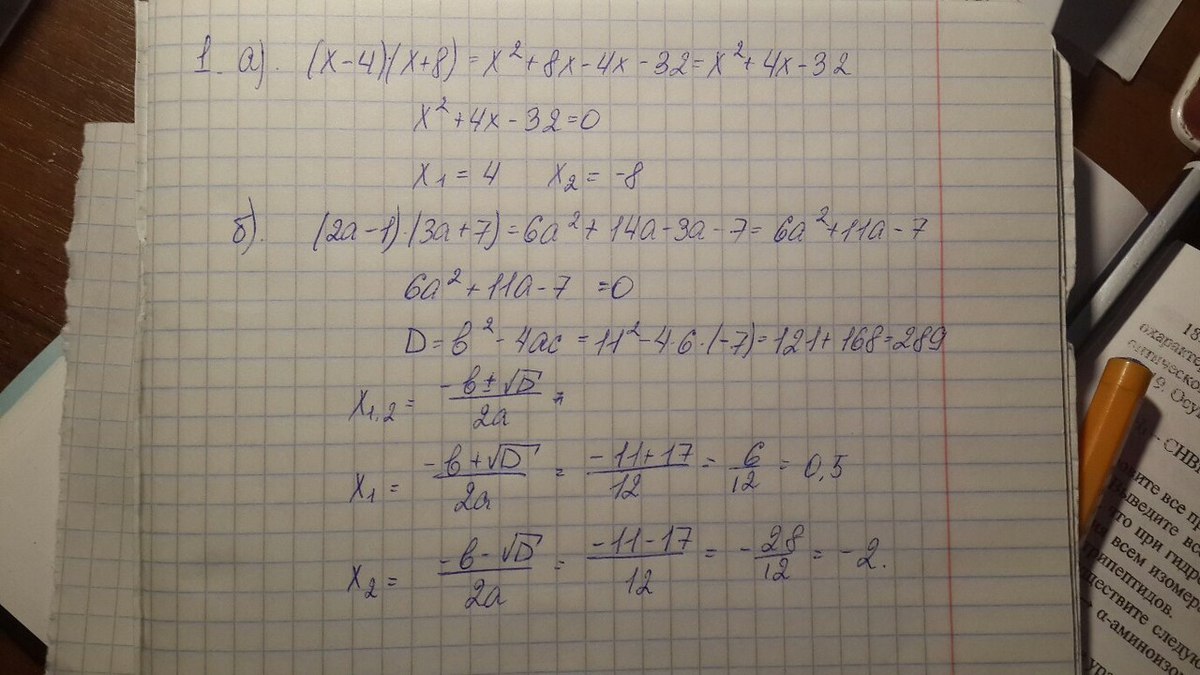 1. а). (x-4)·(x+8) = x²+8x-4x-32 = x²+4x-32
x²+4x-32=0
x₁ = 4 x₂ = -8
б). (2a-1)·(3a+7) = 6a²+14a-3a-7 = 6a²+11a-7
6a²+11a-7 =0
D = b²-4ac = 11²-4·6·(-7) = 121+168=289
x₁,₂ = (-b±√D)/(2a) =
x₁ = (-b+√D)/(2a) = (-11+17)/12 = 6/12 = 0,5
x₂ = (-b-√D)/(2a) = (-11-17)/12 = -28/12 = -2.
18.
охарактер
9. Осу
СНВ
все
выведите
что при гидр
всем изомер
трипептидов.
α-аминоизо